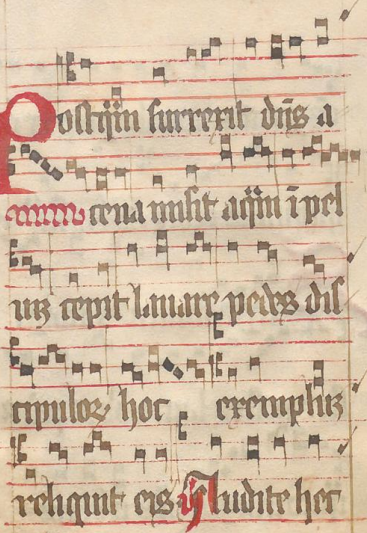 Postq̄m surrexit dn̄s a
cena misit aq̄m ī pel
uꝫ cepit lauare pedes dis
cipuloꝝ hoc exempluꝫ
reliquit eis Audite hec